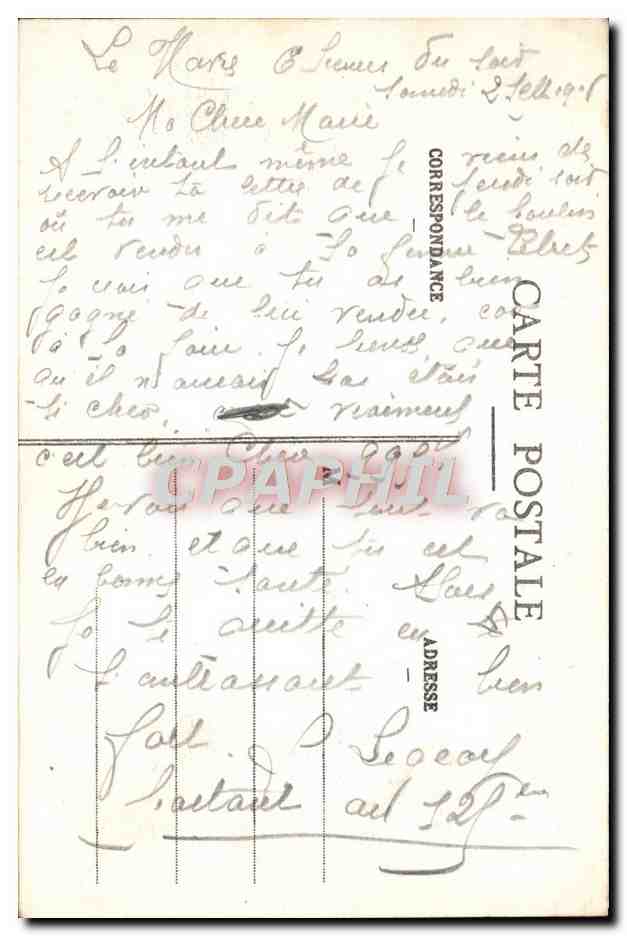 Le Havre 6 heures du soir
Samedi 2 Sept
Ma Chere Marie
A l'instant même je viens de
recevoir ta lettre de jeudi soir
où tu me dit que le
est vendu à la
Je vois que tu as bien
gagné de lui vendu, car
à la foire je pense que
qu'il n'aurais pas était
si cher, vraiment
c'est bien cher
Je vois que tout va
bien et que tu est
en bonne santé. Alors
Je te quitte en te
t'embrassant bien
fort.
partant au 125
CARTE POSTALE
CORRESPONDANCE
ADRESSE
CPAPHIL